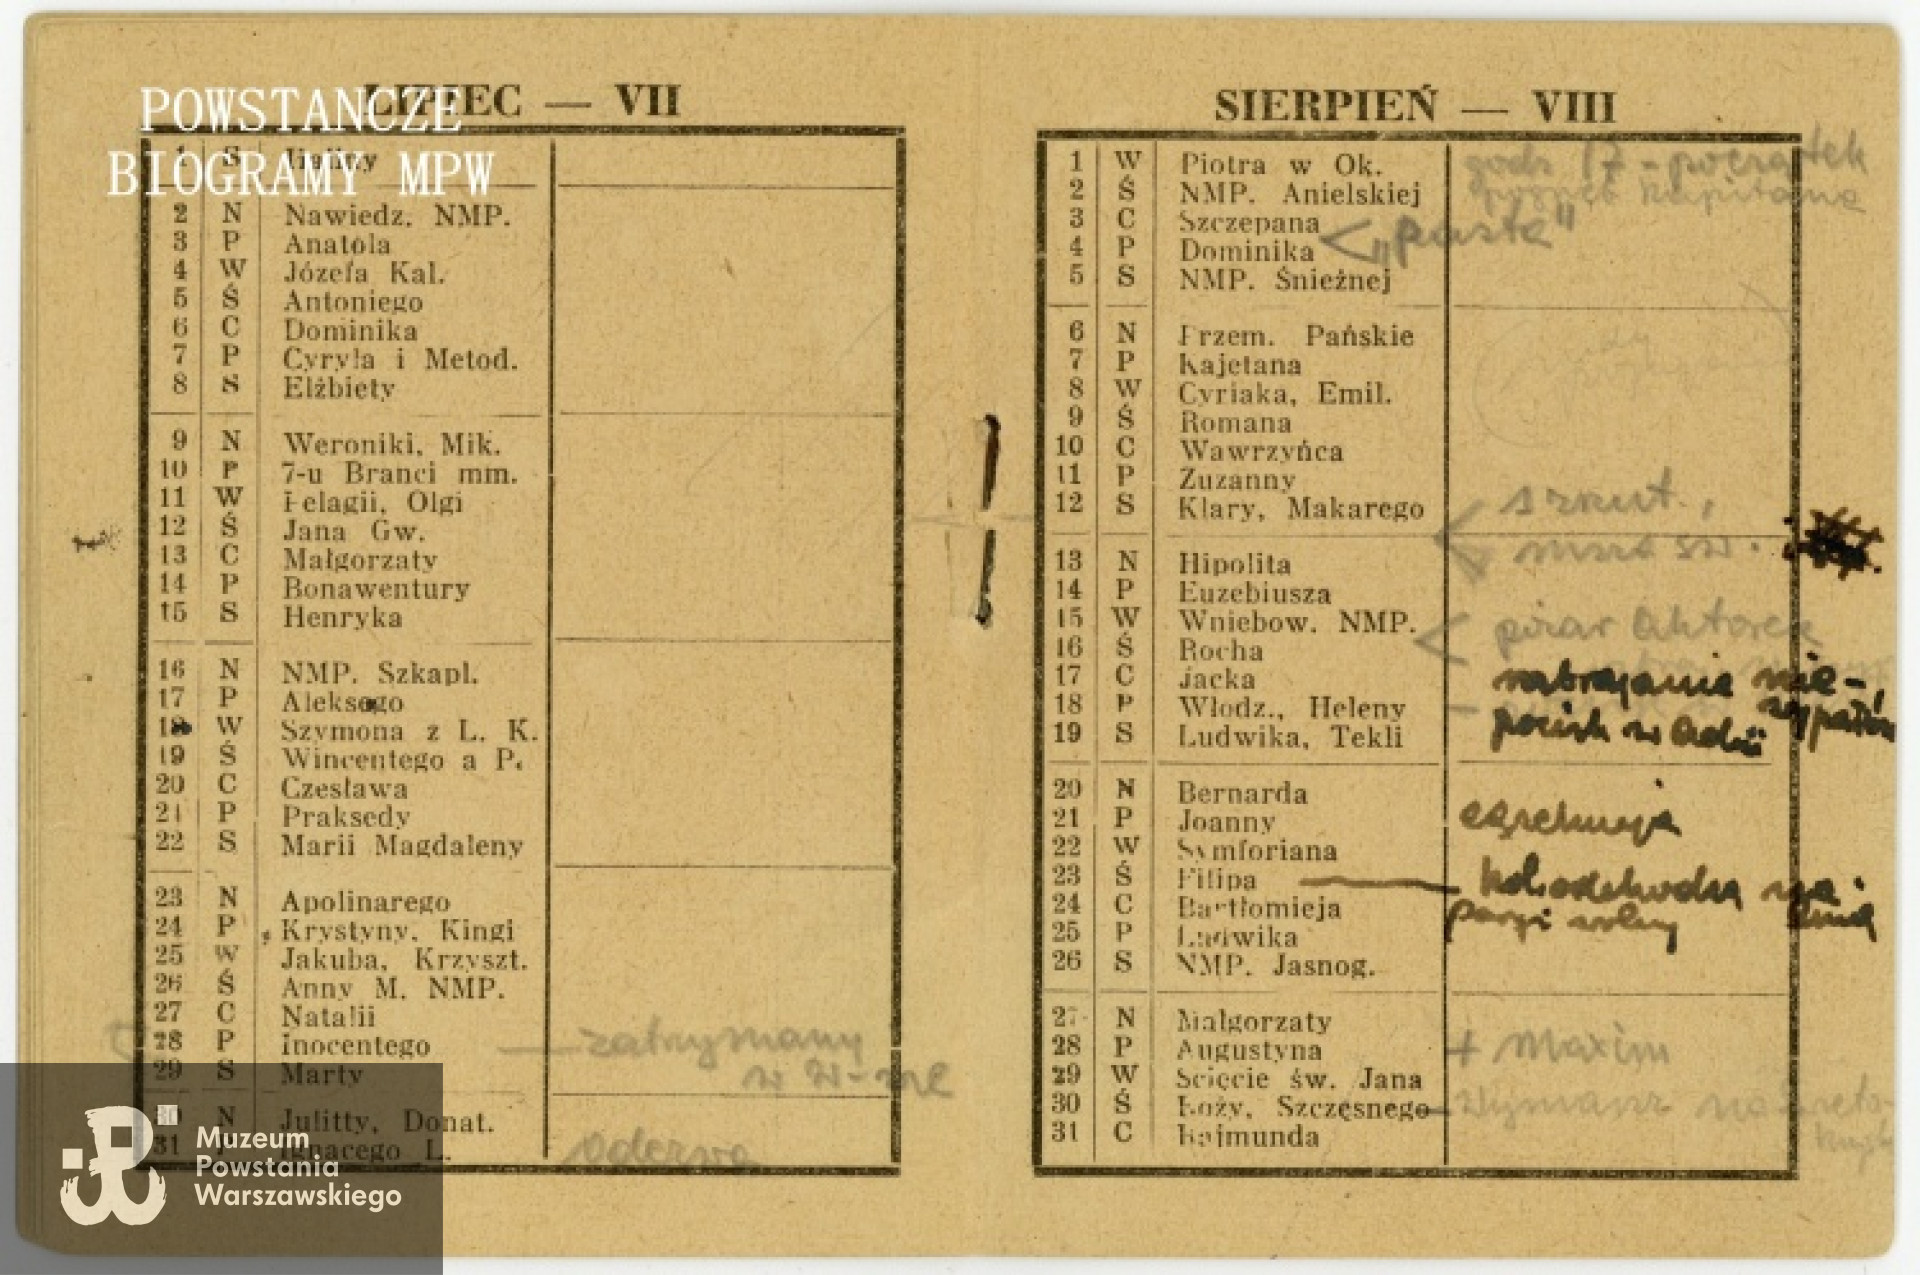 POWSTAŃCZE
BIOGRAMY MPW
LIPIEC — VII
1 S Haliny
2 N Nawiedz. NMP.
3 P Anatola
4 W Józefa Kal.
5 Ś Antoniego
6 C Dominika
7 P Cyryla i Metod.
8 S Elżbiety
9 N Weroniki, Mik.
10 P 7-u Branci mm.
11 W Pelagii, Olgi
12 Ś Jana Gw.
13 C Małgorzaty
14 P Bonawentury
15 S Henryka
16 N NMP. Szkapl.
17 P Aleksego
18 W Szymona z L. K.
19 Ś Wincentego a P.
20 C Czesława
21 P Praksedy
22 S Marii Magdaleny
23 N Apolinarego
24 P Krystyny, Kingi
25 W Jakuba, Krzyszt.
26 Ś Anny M. NMP.
27 C Natalii
28 P Inocentego — zatrzymany
29 S Marty w W-wie
30 N Julitty, Donat.
31 P Ignacego L. odezwa
SIERPIEŃ — VIII
1 W Piotra w Ok. godz 17 - początek
2 Ś NMP. Anielskiej pogrzeb Kapitana
3 C Szczepana
4 P Dominika „Pasta"
5 S NMP. Śnieżnej
6 N Przem. Pańskie
7 P Kajetana
8 W Cyriaka, Emil.
9 Ś Romana
10 C Wawrzyńca
11 P Zuzanny
12 S Klary, Makarego
msza św.
13 N Hipolita
14 P Euzebiusza
15 W Wniebow. NMP. pożar
16 Ś Rocha
17 C Jacka
18 P Włodz., Heleny
19 S Ludwika, Tekli pocisk w
20 N Bernarda
21 P Joanny egzekucja
22 W Symforiana
23 Ś Filipa
24 C Bartłomieja
25 P Ludwika
26 S NMP. Jasnog.
27 N Małgorzaty
28 P Augustyna + Maxim
29 W Ścięcie św. Jana
30 Ś Róży, Szczęsnego — Wymarsz na
31 C Rajmunda
Muzeum
Powstania
Warszawskiego